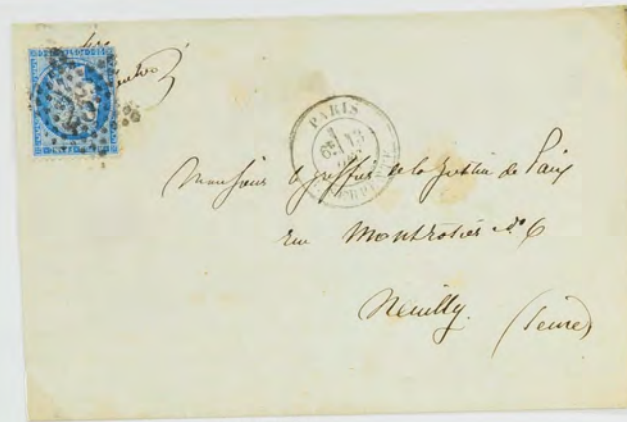 PARIS
13
Monsieur le greffier de la Justice de Paix
rue Montrosier No 6
Neuilly (Seine)